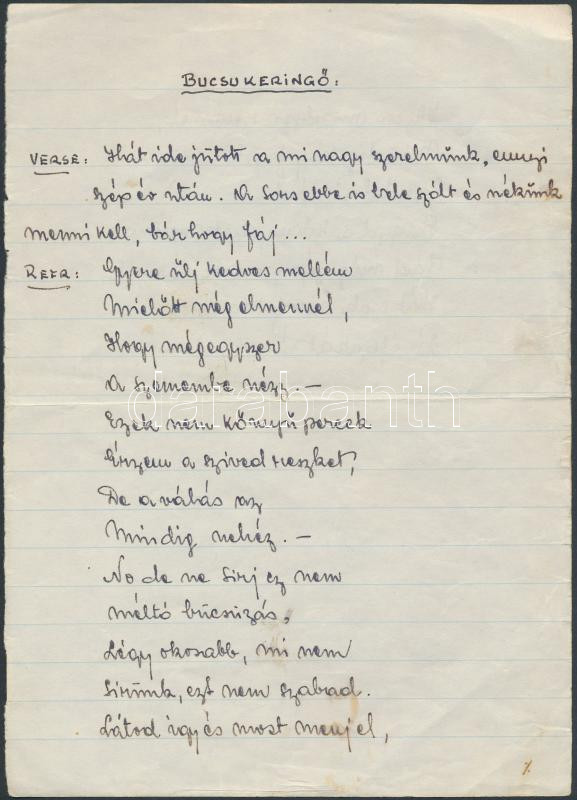 BUCSUKERINGŐ:
VERSE: Hát ide jutott a mi nagy szerelmünk, ennyi
szép év után. A Sors ebbe is bele szólt és nékünk
menni kell, bár hogy fáj...
REFR: Gyere ülj kedves mellém
Mielőtt még elmennél,
Hogy mégegyszer
A szemembe nézz. –
Ezek nem könnyü percek
Érzem a szived reszket,
De a válás az
Mindig nehéz. –
No de ne sirj ez nem
méltó búcsúzás,
Légy okosabb, mi nem
Sirunk, ezt nem szabad.
Látod igy és most menj el,
darabanth